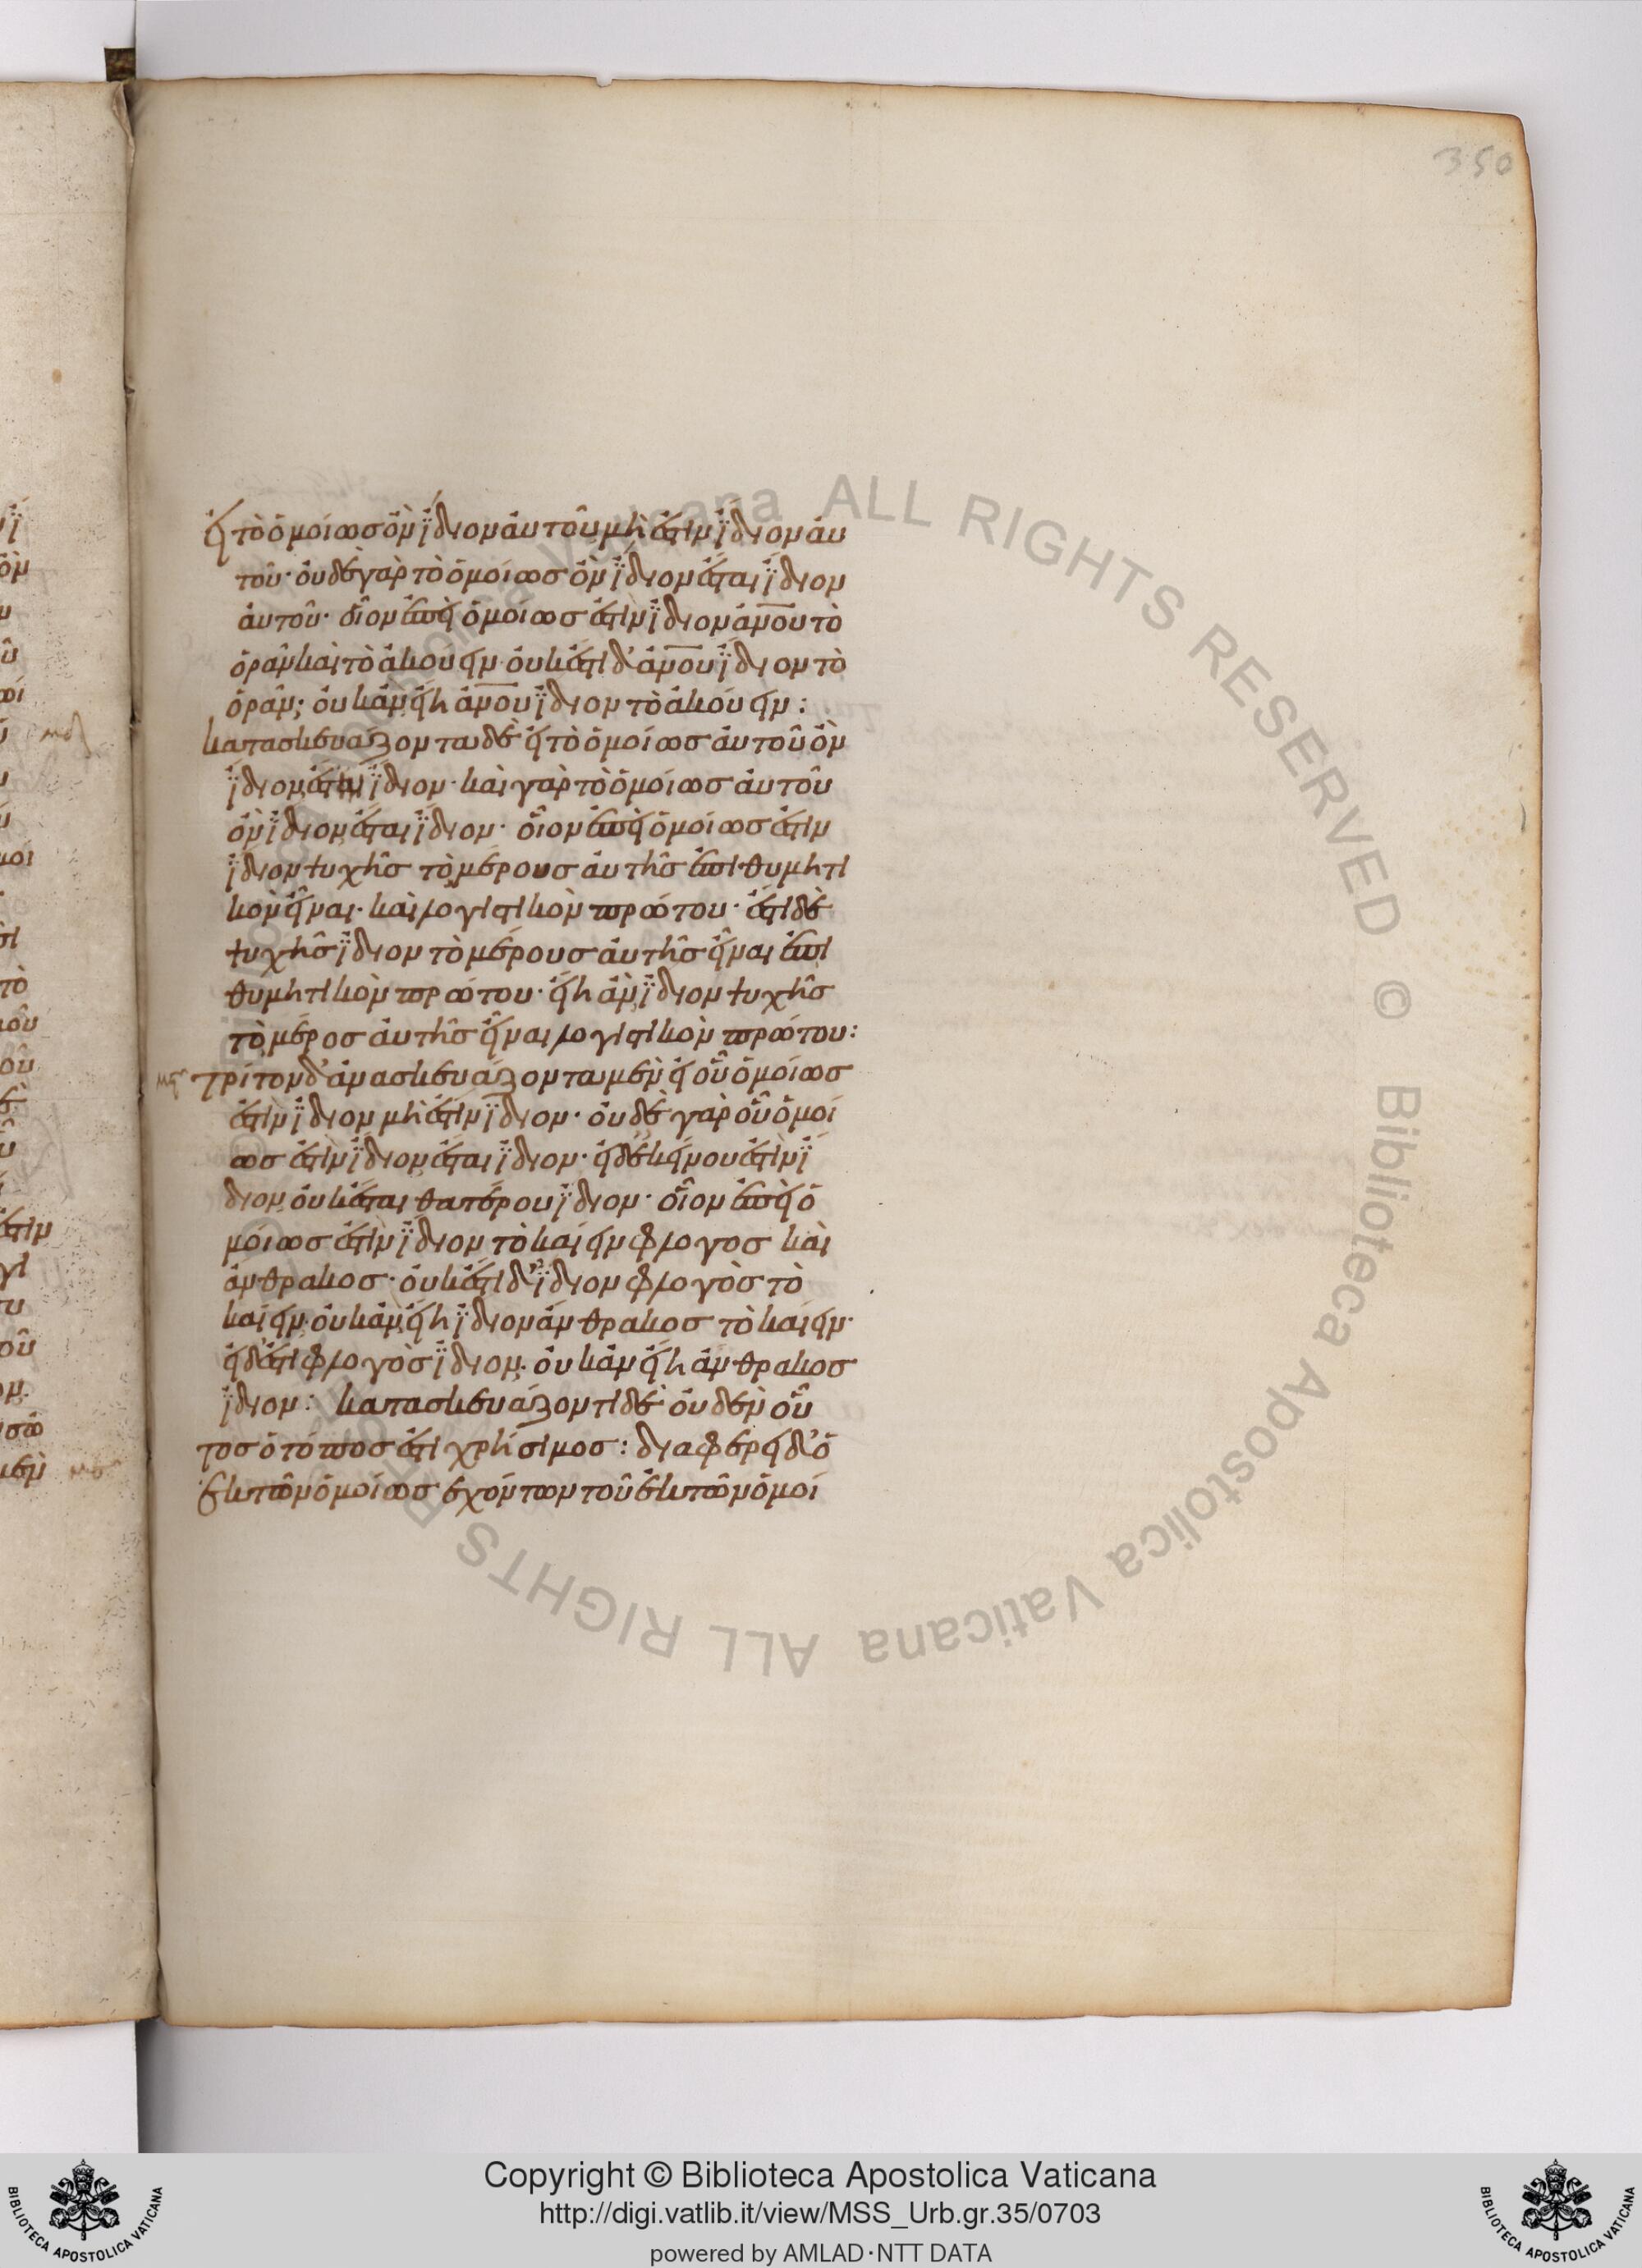 350
εἰ τὸ ὁμοίως ὂν ἴδιον αὐτοῦ μὴ ἔστιν ἴδιον αὐ
τοῦ· οὐδὲ γὰρ τὸ ὁμοίως ὂν ἴδιον ἔσται ἴδιον
αὐτοῦ· οἷον ἐπεὶ ὁμοίως ἐστὶν ἴδιον ἀνου τὸ
ὁρᾶν καὶ τὸ ἀκούειν· οὐκ ἔστι δ' ἀνου ἴδιον τὸ
ὁρᾶν· οὐκ ἂν εἴη ἀνου ἴδιον τὸ ἀκούειν:
κατασκευάζοντα δὲ εἰ τὸ ὁμοίως αὐτοῦ ὂν
ἴδιον ἔσται ἴδιον· καὶ γὰρ τὸ ὁμοίως αὐτοῦ
ὂν ἴδιον ἔσται ἴδιον· οἷον ἐπεὶ ὁμοίως ἐστὶν
ἴδιον ψυχῆς τὸ μέρους αὐτῆς ἐπιθυμητι
κὸν εἶναι· καὶ λογιστικὸν πρώτου· ἔστι δὲ
ψυχῆς ἴδιον τὸ μέρους αὐτῆς εἶναι ἐπι
θυμητικὸν πρώτου· εἴη ἂν ἴδιον ψυχῆς
τὸ μέρος αὐτῆς εἶναι λογιστικὸν πρώτου:
τρίτον δ' ἀνασκευάζοντα μὲν εἰ οὗ ὁμοίως
ἐστὶν ἴδιον μὴ ἔστιν ἴδιον· οὐδὲ γὰρ οὗ ὁμοί
ως ἐστὶν ἴδιον ἔσται ἴδιον· εἰ δ' ἐκείνου ἐστὶν ἴ
διον οὐκ ἔσται θατέρου ἴδιον· οἷον ἐπεὶ ὁ
μοίως ἐστὶν ἴδιον τὸ καίειν φλογὸς καὶ
ἄνθρακος· οὐκ ἔστι δ' ἴδιον φλογὸς τὸ
καίειν· οὐκ ἂν εἴη ἴδιον ἄνθρακος τὸ καίειν·
εἰ δ' ἔστι φλογὸς ἴδιον· οὐκ ἂν εἴη ἄνθρακος
ἴδιον: κατασκευάζοντι δὲ οὐδὲν οὗ
τος ὁ τόπος ἐστὶ χρήσιμος: διαφέρει δ' ὁ
ἐκ τῶν ὁμοίως ἐχόντων τοῦ ἐκ τῶν ὁμοί
ALL RIGHTS RESERVED © Biblioteca Apostolica Vaticana
Copyright © Biblioteca Apostolica Vaticana
http://digi.vatlib.it/view/MSS_Urb.gr.35/0703
powered by AMLAD·NTT DATA
BIBLIOTECA APOSTOLICA VATICANA
BIBLIOTECA APOSTOLICA VATICANA